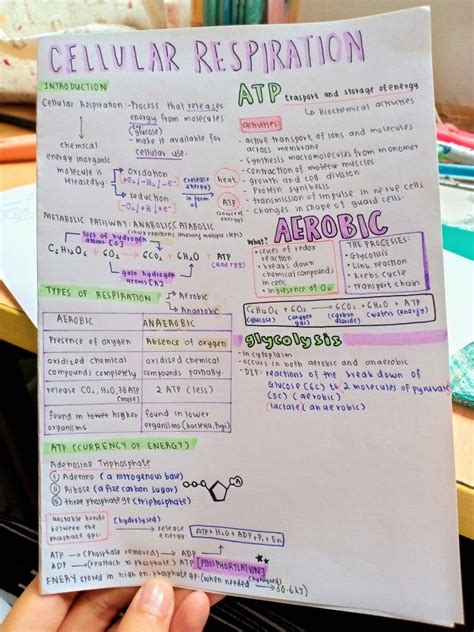 CELLULAR RESPIRATION
INTRODUCTION
Cellular Respiration - Process that releases
energy from molecules
(glucose)
- make it available for
cellular use.
chemical
energy inorganic
molecule is
released by:
Oxidation
[+O₂/-H₂/-e⁻]
reduction
[-O₂/+H/+e⁻]
(release energy)
in form of
heat
ATP
(source of energy)
METABOLIC PATHWAY: ANABOLIC & CATABOLIC
loss of hydrogen
atoms [O]
C₆H₁₂O₆ + 6O₂ → 6CO₂ + 6H₂O + ATP
(energy)
gain hydrogen
atoms [R]
TYPES OF RESPIRATION
Aerobic
Anaerobic
AEROBIC
ANAEROBIC
Presence of oxygen
Absence of oxygen
oxidized chemical
compounds completely
oxidized chemical
compounds partially
release CO₂, H₂O, 38 ATP
(more)
2 ATP (less)
found in higher
organisms
found in lower
organisms (bacteria, fungi)
ATP (CURRENCY OF ENERGY)
Adenosine Triphosphate
i Adenine (a nitrogenous base)
ii Ribose (a five carbon sugar)
iii three phosphate gp. (triphosphate)
A
unstable bonds
between the
phosphate gps.
(hydrolysed)
release
energy
ATP + H₂O → ADP + Pi + En
ATP → (Phosphate removed) → ADP
ADP → (reattach to phosphate) ATP [PHOSPHORYLATION]
ENERGY stored in high en. phosphate gp. (when needed (hydrolysed) → 30.6kJ)
ATP transport and storage of energy
↳ Biochemical activities
activities
- active transport of ions and molecules
across membrane
- synthesis macromolecules from monomer
- contraction of muscles
- growth and cell division
- Protein synthesis
- transmission of impulse in nerve cells
- changes in shape of guard cells.
AEROBIC
What?
• series of redox
reaction
• breaks down
chemical compounds
in cells
• in presence of O₂
THE PROCESSES:
• Glycolysis
• Link reaction
• Krebs cycle
• Transport chain
C₆H₁₂O₆ + 6O₂ → 6CO₂ + 6H₂O + ATP
(glucose) (oxygen gas) (carbon dioxide) (water) (energy)
glycolysis
- in cytoplasm
- occurs in both aerobic and anaerobic
- DEF: reactions of the break down of
Glucose (6C) to 2 molecules of pyruvate
(3C) (aerobic)
lactate (anaerobic)